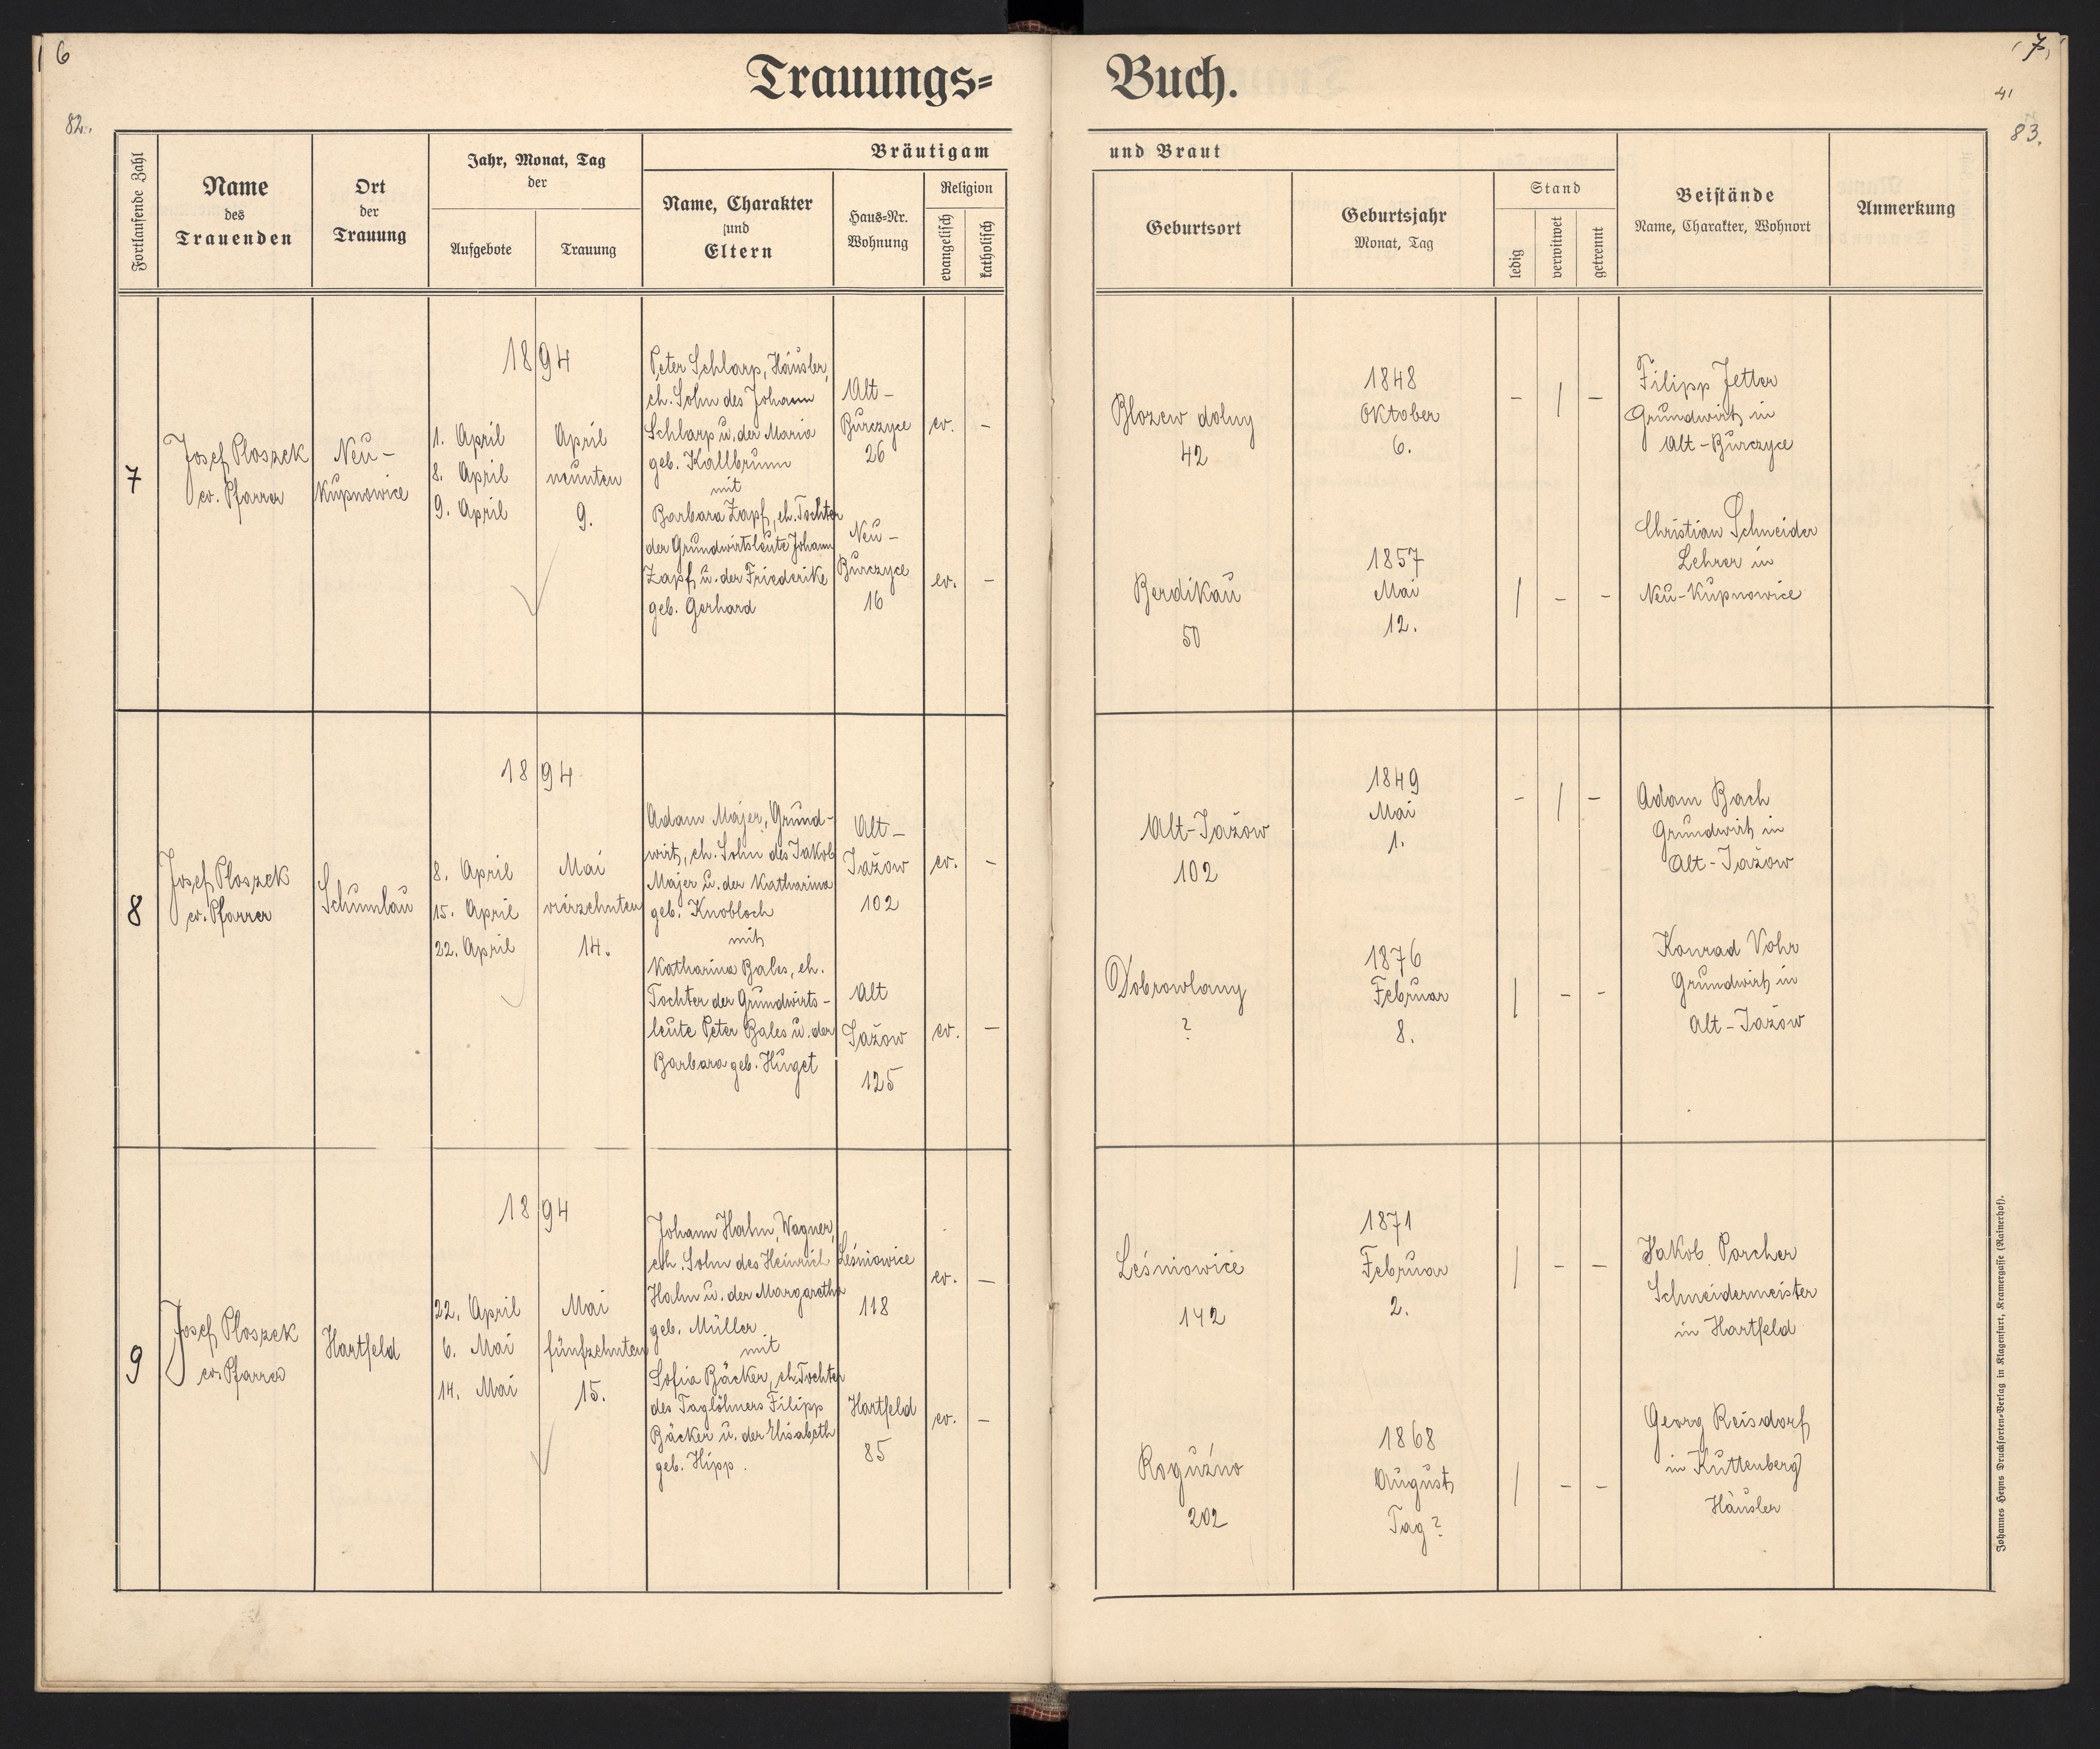 6
7
41
82.
83.
Trauungs=
Buch.
Fortlaufende Zahl
Name
des
Trauenden
Ort
der
Trauung
Jahr, Monat, Tag
der
Aufgebote
Trauung
Bräutigam
und Braut
Name, Charakter
und
Eltern
Haus=Nr.
Wohnung
Religion
evangelisch
katholisch
Geburtsort
Geburtsjahr
Monat, Tag
Stand
ledig
verwitwet
getrennt
Beistände
Name, Charakter, Wohnort
Anmerkung
7
Josef Ploszek
ev. Pfarrer
Neu-
Kupnowice
1894
1. April
8. April
9. April
April
neunten
9.
Peter Schlarp, Häusler,
eh. Sohn des Johann
Schlarp u. der Maria
geb. Kallbrunn
mit
Barbara Zapf, eh. Tochter
der Grundwirtsleute Johann
Zapf u. der Friederike
geb. Gerhard
Alt-
Burczyce
26
Neu-
Burczyce
16
ev. -
ev. -
Blozew dolny
42
Berdikau
50
1848
Oktober
6.
1857
Mai
12.
- / -
/ - -
Filipp Jetter
Grundwirt in
Alt-Burczyce
Christian Schneider
Lehrer in
Neu-Kupnowice
8
Josef Ploszek
ev. Pfarrer
Schumlau
1894
8. April
15. April
22. April
Mai
vierzehnten
14.
Adam Majer, Grund-
wirt, eh. Sohn des Jakob
Majer u. der Katharina
geb. Knobloch
mit
Katharina Bales, eh.
Tochter der Grundwirts-
leute Peter Bales u. der
Barbara geb. Huget
Alt-
Jažow
102
Alt
Jažow
125
ev. -
ev. -
Alt-Jažow
102
Dobrowlany
?
1849
Mai
1.
1876
Februar
8.
- / -
/ - -
Adam Bach
Grundwirt in
Alt-Jažow
Konrad Vohr
Grundwirt in
Alt-Jažow
9
Josef Ploszek
ev. Pfarrer
Hartfeld
1894
22. April
6. Mai
14. Mai
Mai
fünfzehnten
15.
Johann Hahn, Wagner,
eh. Sohn des Heinrich
Hahn u. der Margaretha
geb. Müller
mit
Sofia Bäcker, eh. Tochter
des Taglöhners Filipp
Bäcker u. der Elisabeth
geb. Hipp.
Leśniowice
118
Hartfeld
85
ev. -
ev. -
Leśniowice
142
Roguźno
202
1871
Februar
2.
1868
August
Tag?
/ - -
/ - -
Jakob Porcher
Schneidermeister
in Hartfeld
Georg Reisdorf
in Kuttenberg
Häusler
Johannes Heyns Drucksorten=Verlag in Klagenfurt, Kramergasse (Rainerhof).